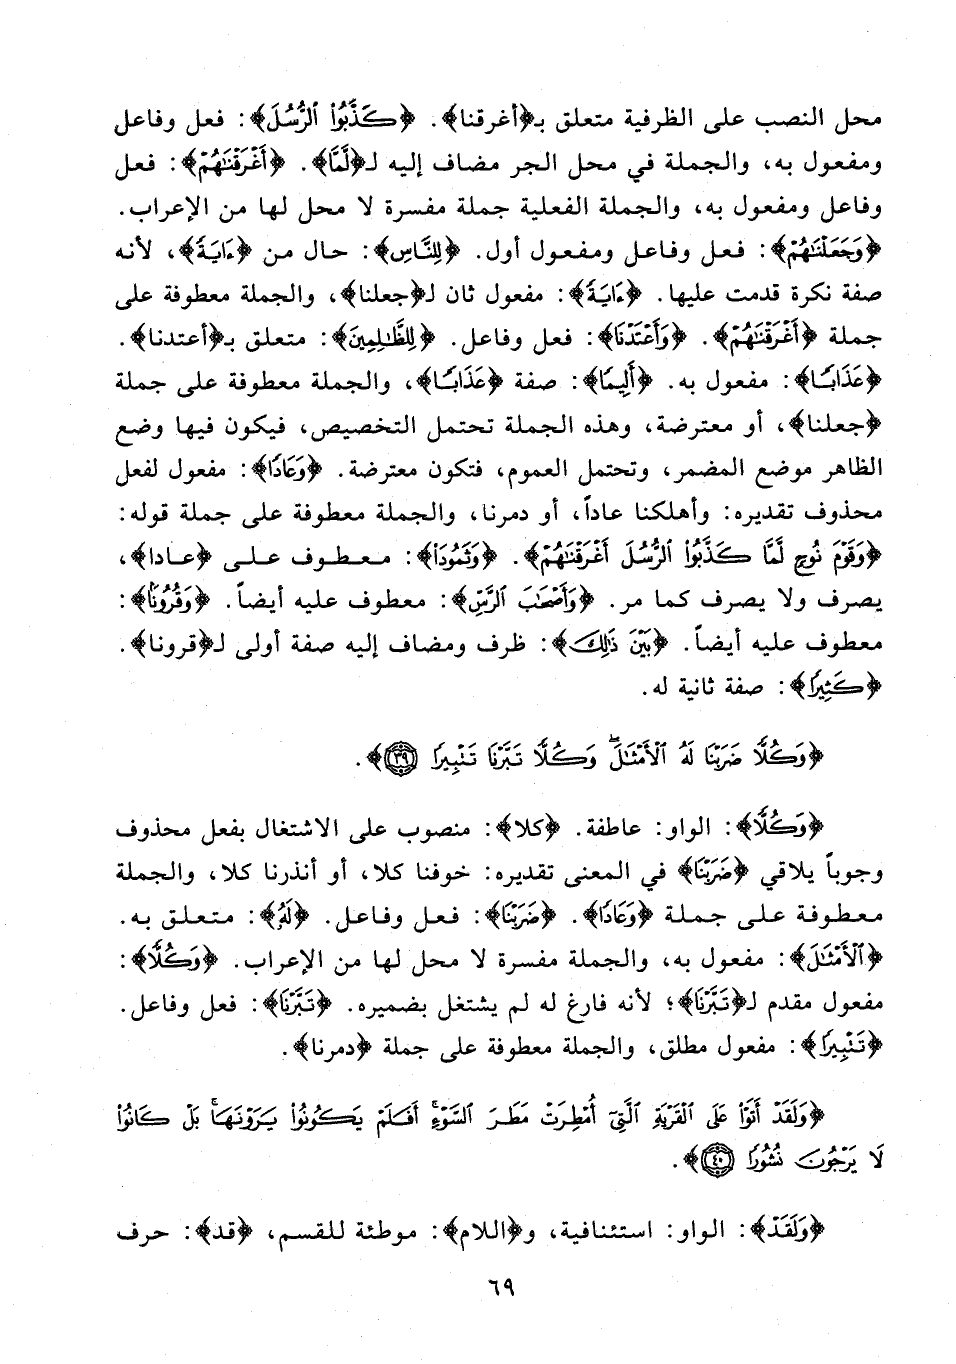 محل النصب على الظرفية متعلق بـ﴿أغرقنا﴾. ﴿كَذَّبُوا۟ ٱلرُّسُلَ﴾: فعل وفاعل
ومفعول به، والجملة في محل الجر مضاف إليه لـ﴿لَّمَّا﴾. ﴿أَغْرَقْنَٰهُمْ﴾: فعل
وفاعل ومفعول به، والجملة الفعلية جملة مفسرة لا محل لها من الإعراب.
﴿وَجَعَلْنَٰهُمْ﴾: فعل وفاعل ومفعول أول. ﴿لِلنَّاسِ﴾: حال من ﴿ءَايَةً﴾، لأنه
صفة نكرة قدمت عليها. ﴿ءَايَةً﴾: مفعول ثان لـ﴿جعلنا﴾، والجملة معطوفة على
جملة ﴿أَغْرَقْنَٰهُمْ﴾. ﴿وَأَعْتَدْنَا﴾: فعل وفاعل. ﴿لِلظَّٰلِمِينَ﴾: متعلق بـ﴿أعتدنا﴾.
﴿عَذَابًا﴾: مفعول به. ﴿أَلِيمًا﴾: صفة ﴿عَذَابًا﴾، والجملة معطوفة على جملة
﴿جعلنا﴾، أو معترضة، وهذه الجملة تحتمل التخصيص، فيكون فيها وضع
الظاهر موضع المضمر، وتحتمل العموم، فتكون معترضة. ﴿وَعَادًا﴾: مفعول لفعل
محذوف تقديره: وأهلكنا عاداً، أو دمرنا، والجملة معطوفة على جملة قوله:
﴿وَقَوْمَ نُوحٍ لَّمَّا كَذَّبُوا۟ ٱلرُّسُلَ أَغْرَقْنَٰهُمْ﴾. ﴿وَثَمُودَا۟﴾: معطوف على ﴿عادا﴾،
يصرف ولا يصرف كما مر. ﴿وَأَصْحَٰبَ ٱلرَّسِّ﴾: معطوف عليه أيضاً. ﴿وَقُرُونًۢا﴾:
معطوف عليه أيضاً. ﴿بَيْنَ ذَٰلِكَ﴾: ظرف ومضاف إليه صفة أولى لـ﴿قرونا﴾.
﴿كَثِيرًا﴾: صفة ثانية له.
﴿وَكُلًّا ضَرَبْنَا لَهُ ٱلْأَمْثَٰلَ ۖ وَكُلًّا تَبَّرْنَا تَتْبِيرًا ٣٩﴾.
﴿وَكُلًّا﴾: الواو: عاطفة. ﴿كلا﴾: منصوب على الاشتغال بفعل محذوف
وجوباً يلاقي ﴿ضَرَبْنَا﴾ في المعنى تقديره: خوفنا كلا، أو أنذرنا كلا، والجملة
معطوفة على جملة ﴿وَعَادًا﴾. ﴿ضَرَبْنَا﴾: فعل وفاعل. ﴿لَهُ﴾: متعلق به.
﴿ٱلْأَمْثَٰلَ﴾: مفعول به، والجملة مفسرة لا محل لها من الإعراب. ﴿وَكُلًّا﴾:
مفعول مقدم لـ﴿تَبَّرْنَا﴾؛ لأنه فارغ له لم يشتغل بضميره. ﴿تَبَّرْنَا﴾: فعل وفاعل.
﴿تَتْبِيرًا﴾: مفعول مطلق، والجملة معطوفة على جملة ﴿دمرنا﴾.
﴿وَلَقَدْ أَتَوْا۟ عَلَى ٱلْقَرْيَةِ ٱلَّتِىٓ أُمْطِرَتْ مَطَرَ ٱلسَّوْءِ ۚ أَفَلَمْ يَكُونُوا۟ يَرَوْنَهَا ۚ بَلْ كَانُوا۟
لَا يَرْجُونَ نُشُورًا ٤٠﴾.
﴿وَلَقَدْ﴾: الواو: استئنافية، و﴿اللام﴾: موطئة للقسم، ﴿قد﴾: حرف
٦٩